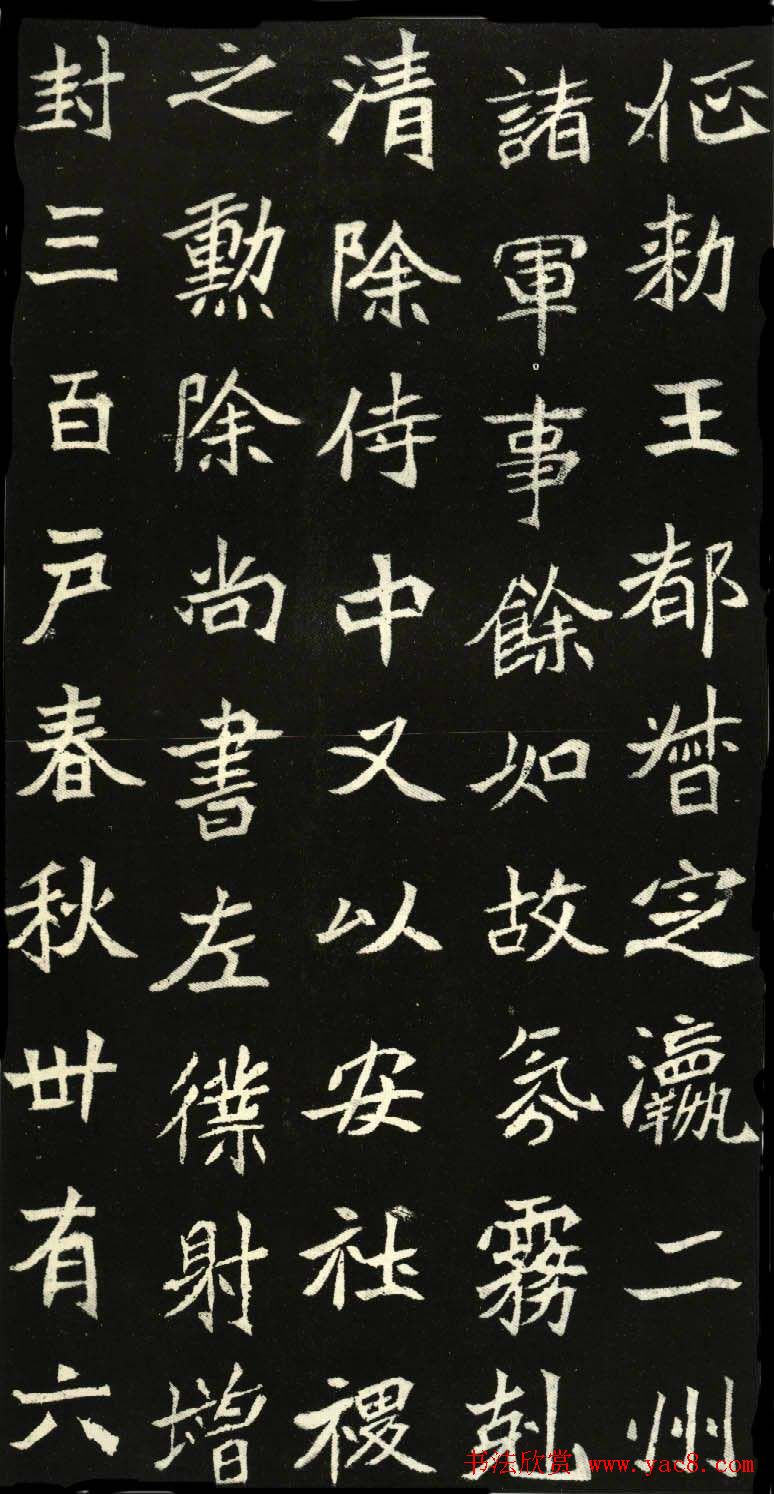 勑王都督定瀛二州
諸軍事餘如故氛霧剋
清除侍中又以安社稷
之勳除尚書左僕射增
封三百户春秋卌有六
书法欣赏 www.yac8.com